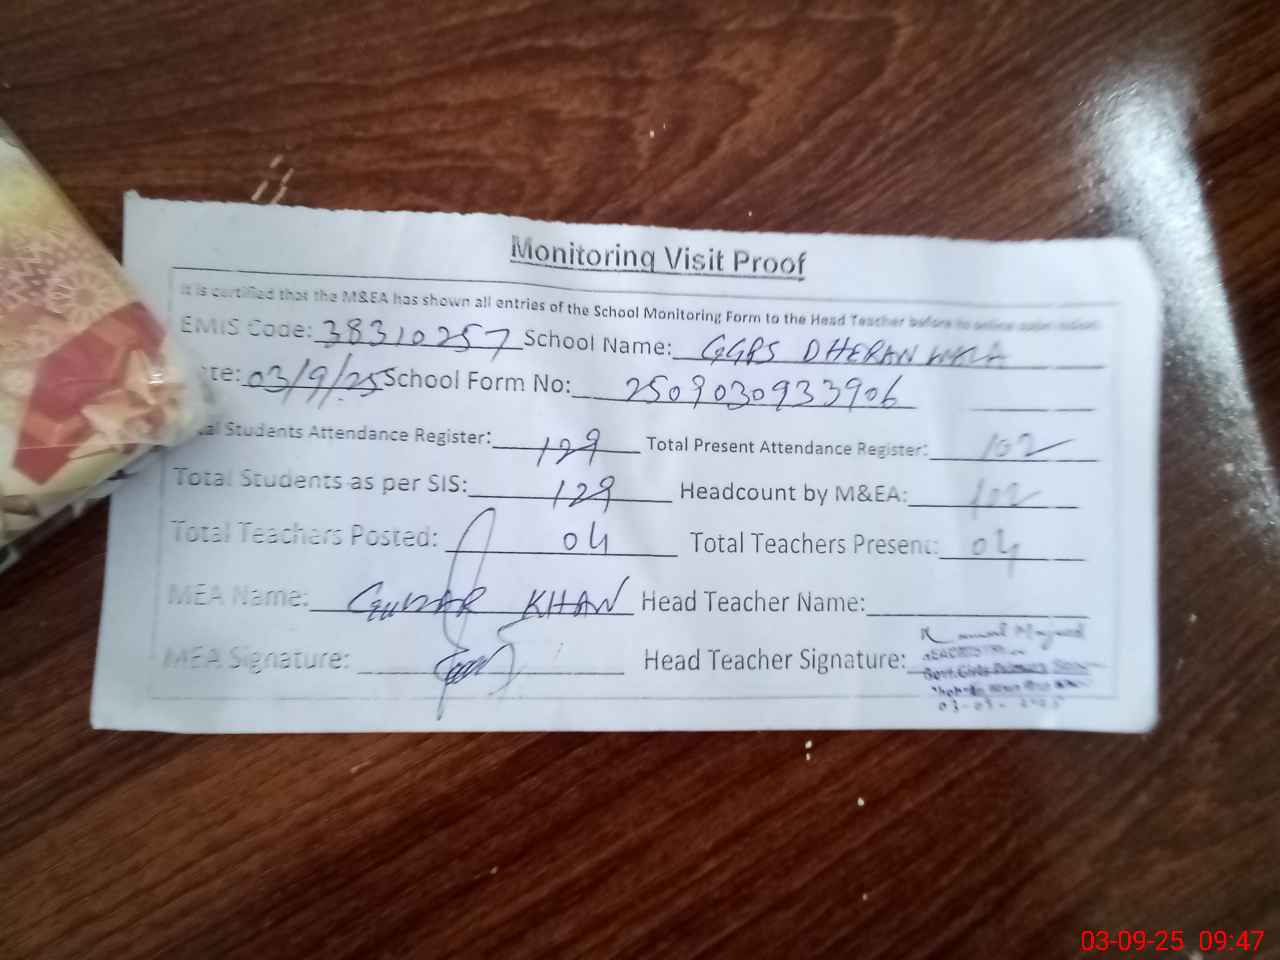 Monitoring Visit Proof
It is certified that the M&EA has shown all entries of the School Monitoring Form to the Head Teacher before
EMIS Code: 38310257 School Name: GGPS DHERAN WALA
te: 03/9/25 School Form No: 2509030933906
al Students Attendance Register: 129 Total Present Attendance Register: 102
Total Students as per SIS: 129 Headcount by M&EA: 102
Total Teachers Posted: 04 Total Teachers Present: 04
MEA Name: KHAN Head Teacher Name:
MEA Signature: Head Teacher Signature:
Govt. Girls Primary
03-09-25 09:47